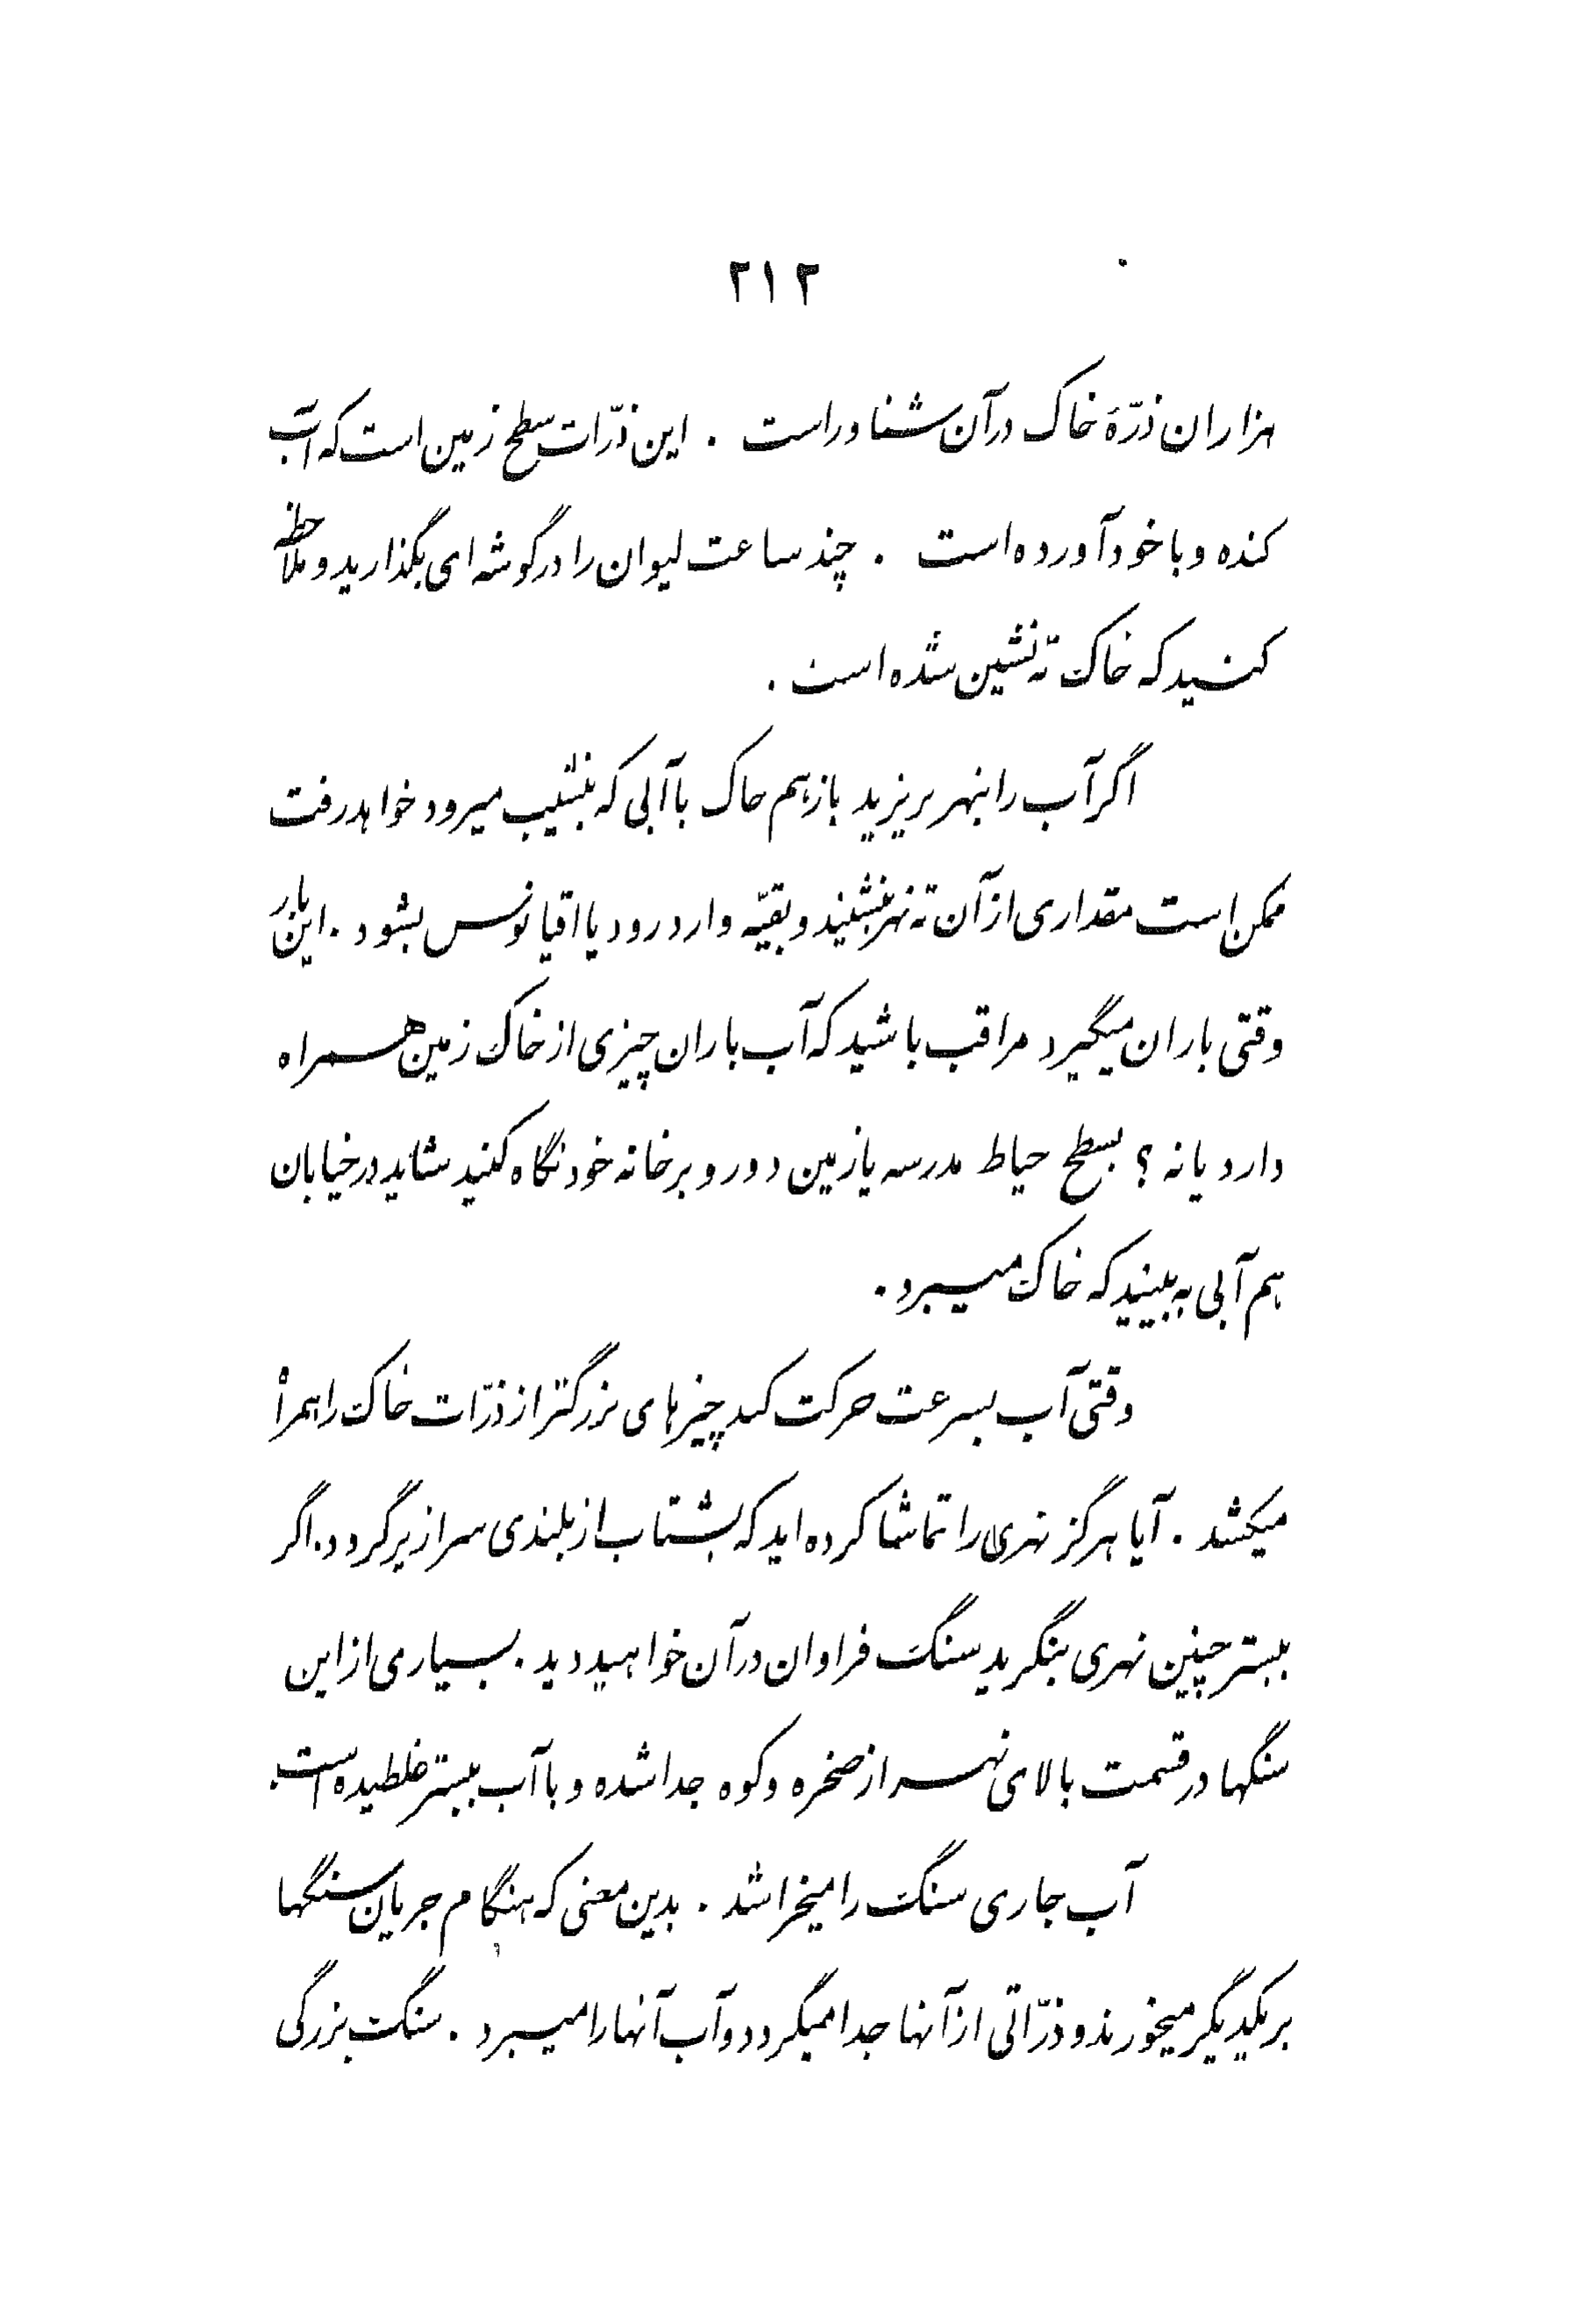 ۲۱۲
هزاران ذرّهٔ خاک در آن شناور است . این ذرّات سطح زمین است که آب
کنده و با خود آورده است . چند ساعت لیوان را در گوشه ای بگذارید و ملاحظه
کنید که خاک ته نشین شده است .
اگر آب را بنهر بریزید باز هم خاک با آبی که بنشیب میرود خواهد رفت
ممکن است مقداری از آن ته نهر بنشیند و بقیّه وارد رود یا اقیانوس بشود . این بار
وقتی باران میگیرد مراقب باشید که آب باران چیزی از خاک زمین همراه
دارد یا نه ؟ بسطح حیاط مدرسه یا زمین دور و بر خانه خود نگاه کنید شاید در خیابان
هم آبی به بینید که خاک میبرد .
وقتی آب بسرعت حرکت کند چیزهای بزرگتر از ذرّات خاک را همراه
میکشد . آیا هرگز نهری را تماشا کرده اید که بشتاب از بلندی سرازیر گردد . اگر
ببستر چنین نهری بنگرید سنگ فراوان در آن خواهید دید . بسیاری از این
سنگها در قسمت بالای نهر از صخره و کوه جدا شده و با آب ببستر غلطیده است .
آب جاری سنگ را میخراشد . بدین معنی که هنگام جریان سنگها
بر یکدیگر میخورند و ذرّاتی از آنها جدا میگردد و آب آنها را میبرد . سنگ بزرگی